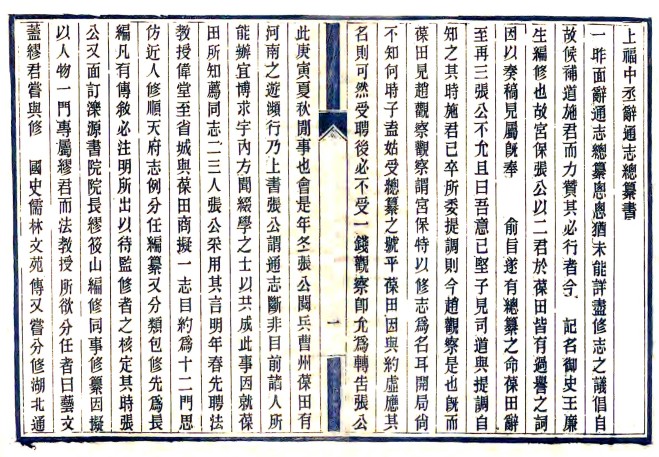 上福中丞辭通志總纂書
一昨面辭通志總纂悤悤猶未能詳盡修志之議倡自
故候補道施君而力贊其必行者今　記名御史王廉
生編修也故宮保張公以二君於葆田皆有過譽之詞
因以奏稿見屬旣奉　　俞旨遂有總纂之命葆田辭
至再三張公不允且曰吾意已堅子見司道與提調自
知之其時施君已卒所委提調則今趙觀察是也旣而
葆田見趙觀察觀察謂宮保特以修志爲名耳開局尙
不知何時子盍姑受總纂之號乎葆田因與約虛應其
名則可然受聘後必不受一錢觀察卽允爲轉告張公
一
此庚寅夏秋閒事也會是年冬張公閱兵曹州葆田有
河南之遊濒行乃上書張公謂通志斷非目前諸人所
能辦宜博求宇內方聞綴學之士以共成此事因就葆
田所知薦同志二三人張公采用其言明年春先聘法
教授偉堂至省城與葆田商擬一志目約爲十二門思
仿近人修順天府志例分任編纂又分類包修先爲長
編凡有傳敘必注明所出以待監修者之核定其時張
公又面訂濼源書院院長繆筱山編修同事修纂因擬
以人物一門專屬繆君而法教授所欲分任者曰藝文
蓋繆君嘗與修　國史儒林文苑傳又嘗分修湖北通